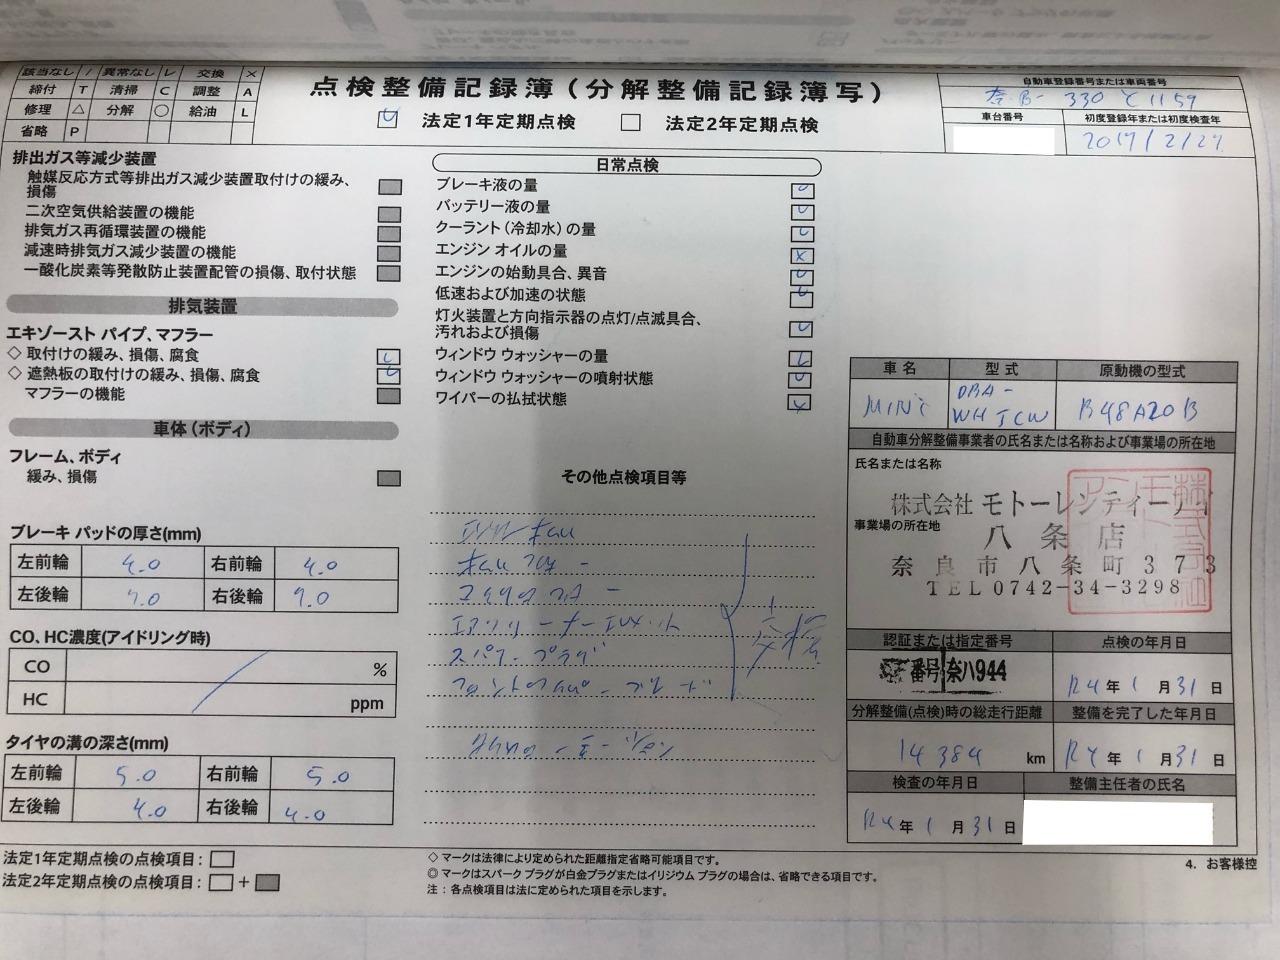 該当なし / 異常なし レ 交換 ×
締付 T 清掃 C 調整 A
修理 △ 分解 ○ 給油 L
省略 P
点検整備記録簿(分解整備記録簿写)
レ 法定1年定期点検 □ 法定2年定期点検
自動車登録番号または車両番号
330 1159
車台番号
初度登録年または初度検査年
排出ガス等減少装置
触媒反応方式等排出ガス減少装置取付けの緩み、
損傷
二次空気供給装置の機能
排気ガス再循環装置の機能
減速時排気ガス減少装置の機能
一酸化炭素等発散防止装置配管の損傷、取付状態
排気装置
エキゾースト パイプ、マフラー
◇ 取付けの緩み、損傷、腐食 レ
◇ 遮熱板の取付けの緩み、損傷、腐食 レ
マフラーの機能
車体(ボディ)
フレーム、ボディ
緩み、損傷
ブレーキ パッドの厚さ(mm)
左前輪 右前輪
左後輪 右後輪
CO、HC濃度(アイドリング時)
CO / %
HC ppm
タイヤの溝の深さ(mm)
左前輪 5.0 右前輪 5.0
左後輪 4.0 右後輪 4.0
法定1年定期点検の点検項目:□
法定2年定期点検の点検項目:□+■
日常点検
ブレーキ液の量 レ
バッテリー液の量 レ
クーラント(冷却水)の量 レ
エンジン オイルの量 ×
エンジンの始動具合、異音 レ
低速および加速の状態 レ
灯火装置と方向指示器の点灯/点滅具合、
汚れおよび損傷 レ
ウィンドウ ウォッシャーの量 レ
ウィンドウ ウォッシャーの噴射状態 レ
ワイパーの払拭状態 ×
その他点検項目等
スパークプラグ
◇ マークは法律により定められた距離指定省略可能項目です。
◎ マークはスパーク プラグが白金プラグまたはイリジウム プラグの場合は、省略できる項目です。
注 : 各点検項目は法に定められた項目を示します。
車名 型式 原動機の型式
MINI DBA- B48A20B
自動車分解整備事業者の氏名または名称および事業場の所在地
氏名または名称
株式会社 モトーレンティーアイ
事業場の所在地
八条店
奈良市八条町373
TEL0742-34-3298
認証または指定番号 点検の年月日
番号 奈ハ944
R4年1月31日
分解整備(点検)時の総走行距離 整備を完了した年月日
14384 km R4年1月31日
検査の年月日 整備主任者の氏名
R4年1月31日
4. お客様控